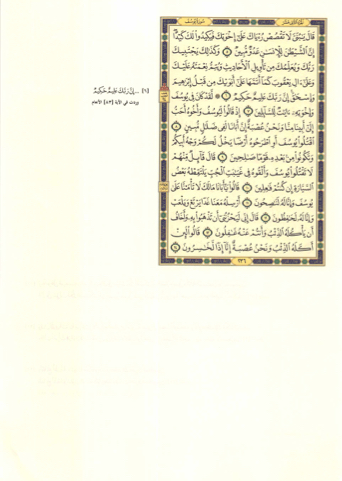 الجزء الثاني عشر
سورة يوسف
قَالَ يَٰبُنَيَّ لَا تَقْصُصْ رُءْيَاكَ عَلَىٰٓ إِخْوَتِكَ فَيَكِيدُوا۟ لَكَ كَيْدًا
إِنَّ ٱلشَّيْطَٰنَ لِلْإِنسَٰنِ عَدُوٌّ مُّبِينٌ ٥ وَكَذَٰلِكَ يَجْتَبِيكَ
رَبُّكَ وَيُعَلِّمُكَ مِن تَأْوِيلِ ٱلْأَحَادِيثِ وَيُتِمُّ نِعْمَتَهُۥ عَلَيْكَ
وَعَلَىٰٓ ءَالِ يَعْقُوبَ كَمَآ أَتَمَّهَا عَلَىٰٓ أَبَوَيْكَ مِن قَبْلُ إِبْرَٰهِيمَ
وَإِسْحَٰقَ إِنَّ رَبَّكَ عَلِيمٌ حَكِيمٌ ٦ ۞ لَّقَدْ كَانَ فِى يُوسُفَ
وَإِخْوَتِهِۦٓ ءَايَٰتٌ لِّلسَّآئِلِينَ ٧ إِذْ قَالُوا۟ لَيُوسُفُ وَأَخُوهُ أَحَبُّ
إِلَىٰٓ أَبِينَا مِنَّا وَنَحْنُ عُصْبَةٌ إِنَّ أَبَانَا لَفِى ضَلَٰلٍ مُّبِينٍ ٨
ٱقْتُلُوا۟ يُوسُفَ أَوِ ٱطْرَحُوهُ أَرْضًا يَخْلُ لَكُمْ وَجْهُ أَبِيكُمْ
وَتَكُونُوا۟ مِنۢ بَعْدِهِۦ قَوْمًا صَٰلِحِينَ ٩ قَالَ قَآئِلٌ مِّنْهُمْ
لَا تَقْتُلُوا۟ يُوسُفَ وَأَلْقُوهُ فِى غَيَٰبَتِ ٱلْجُبِّ يَلْتَقِطْهُ بَعْضُ
ٱلسَّيَّارَةِ إِن كُنتُمْ فَٰعِلِينَ ١٠ قَالُوا۟ يَٰٓأَبَانَا مَا لَكَ لَا تَأْمَ۫نَّا عَلَىٰ
يُوسُفَ وَإِنَّا لَهُۥ لَنَٰصِحُونَ ١١ أَرْسِلْهُ مَعَنَا غَدًا يَرْتَعْ وَيَلْعَبْ
وَإِنَّا لَهُۥ لَحَٰفِظُونَ ١٢ قَالَ إِنِّى لَيَحْزُنُنِىٓ أَن تَذْهَبُوا۟ بِهِۦ وَأَخَافُ
أَن يَأْكُلَهُ ٱلذِّئْبُ وَأَنتُمْ عَنْهُ غَٰفِلُونَ ١٣ قَالُوا۟ لَئِنْ
أَكَلَهُ ٱلذِّئْبُ وَنَحْنُ عُصْبَةٌ إِنَّآ إِذًا لَّخَٰسِرُونَ ١٤
٢٣٦
[٦] ...إِنَّ رَبَّكَ عَلِيمٌ حَكِيمٌ
وردت في الآية [٨٣] الأنعام